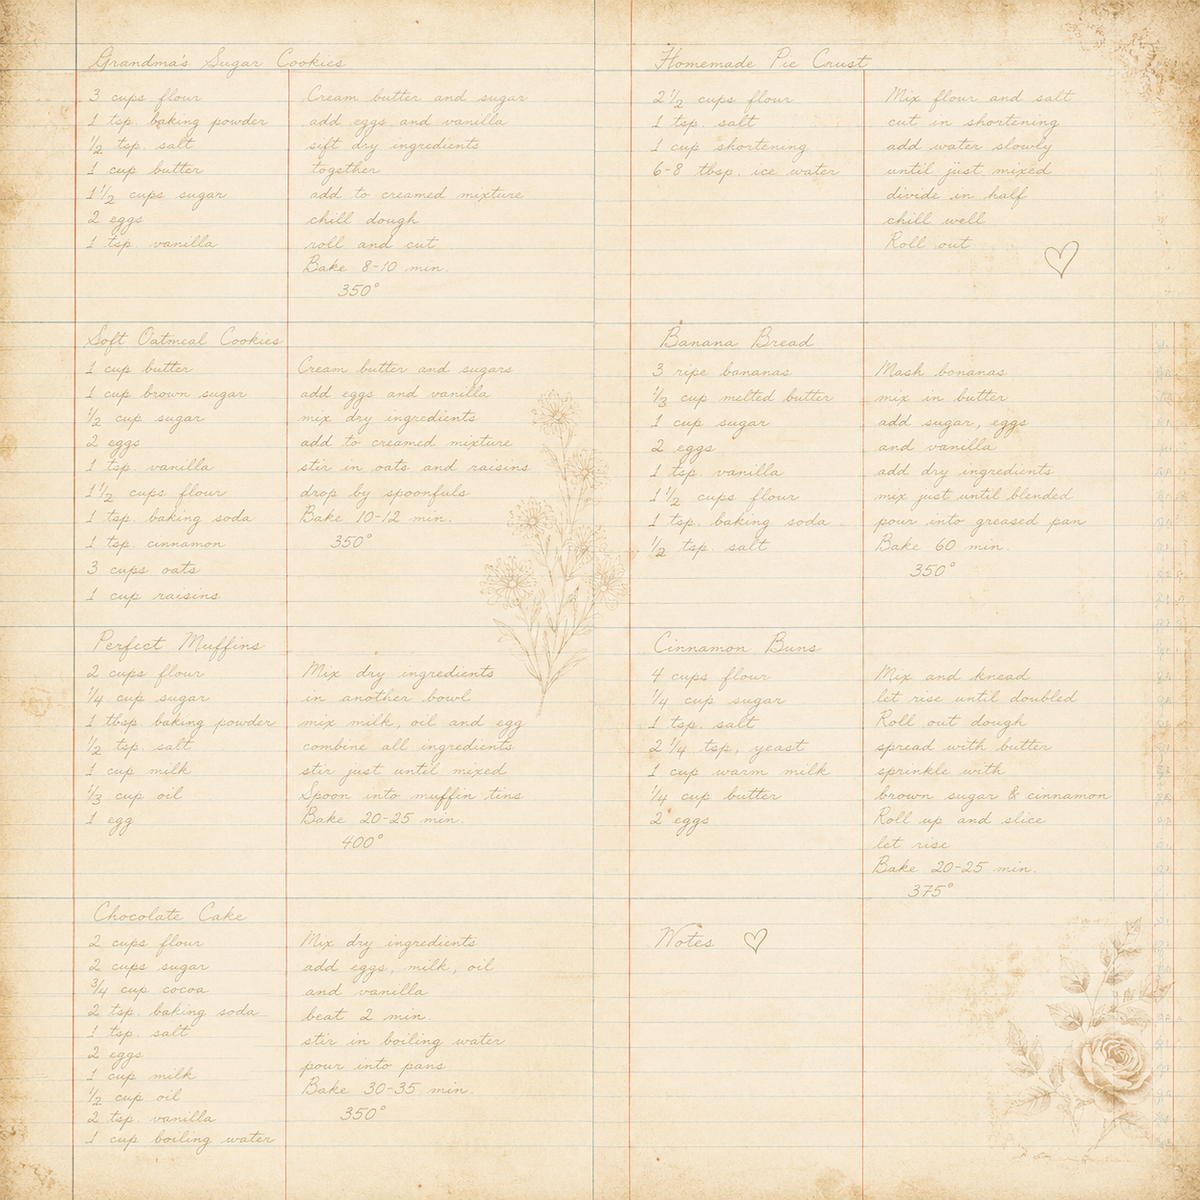 Grandma's Sugar Cookies
3 cups flour
1 tsp. baking powder
1/2 tsp. salt
1 cup butter
1 1/2 cups sugar
2 eggs
1 tsp. vanilla
Cream butter and sugar
add eggs and vanilla
sift dry ingredients
together
add to creamed mixture
chill dough
roll and cut
Bake 8-10 min.
350°
Soft Oatmeal Cookies
1 cup butter
1 cup brown sugar
1/2 cup sugar
2 eggs
1 tsp. vanilla
1 1/2 cups flour
1 tsp. baking soda
1 tsp. cinnamon
3 cups oats
1 cup raisins
Cream butter and sugars
add eggs and vanilla
mix dry ingredients
add to creamed mixture
stir in oats and raisins
drop by spoonfuls
Bake 10-12 min.
350°
Perfect Muffins
2 cups flour
1/4 cup sugar
1 tbsp. baking powder
1/2 tsp. salt
1 cup milk
1/3 cup oil
1 egg
Mix dry ingredients
in another bowl
mix milk, oil and egg
combine all ingredients
stir just until mixed
Spoon into muffin tins
Bake 20-25 min.
400°
Chocolate Cake
2 cups flour
2 cups sugar
3/4 cup cocoa
2 tsp. baking soda
1 tsp. salt
2 eggs
1 cup milk
1/2 cup oil
2 tsp. vanilla
1 cup boiling water
Mix dry ingredients
add eggs, milk, oil
and vanilla
beat 2 min.
stir in boiling water
pour into pans
Bake 30-35 min.
350°
Homemade Pie Crust
2 1/2 cups flour
1 tsp. salt
1 cup shortening
6-8 tbsp. ice water
Mix flour and salt
cut in shortening
add water slowly
until just mixed
divide in half
chill well
Roll out
Banana Bread
3 ripe bananas
1/3 cup melted butter
1 cup sugar
2 eggs
1 tsp. vanilla
1 1/2 cups flour
1 tsp. baking soda
1/2 tsp. salt
Mash bonanas
mix in butter
add sugar, eggs
and vanilla
add dry ingredients
mix just until blended
pour into greased pan
Bake 60 min.
350°
Cinnamon Buns
4 cups flour
1/4 cup sugar
1 tsp. salt
2 1/4 tsp, yeast
1 cup warm milk
1/4 cup butter
2 eggs
Mix and knead
let rise until doubled
Roll out dough
spread with butter
sprinkle with
brown sugar & cinnamon
Roll up and slice
let rise
Bake 20-25 min.
375°
Notes